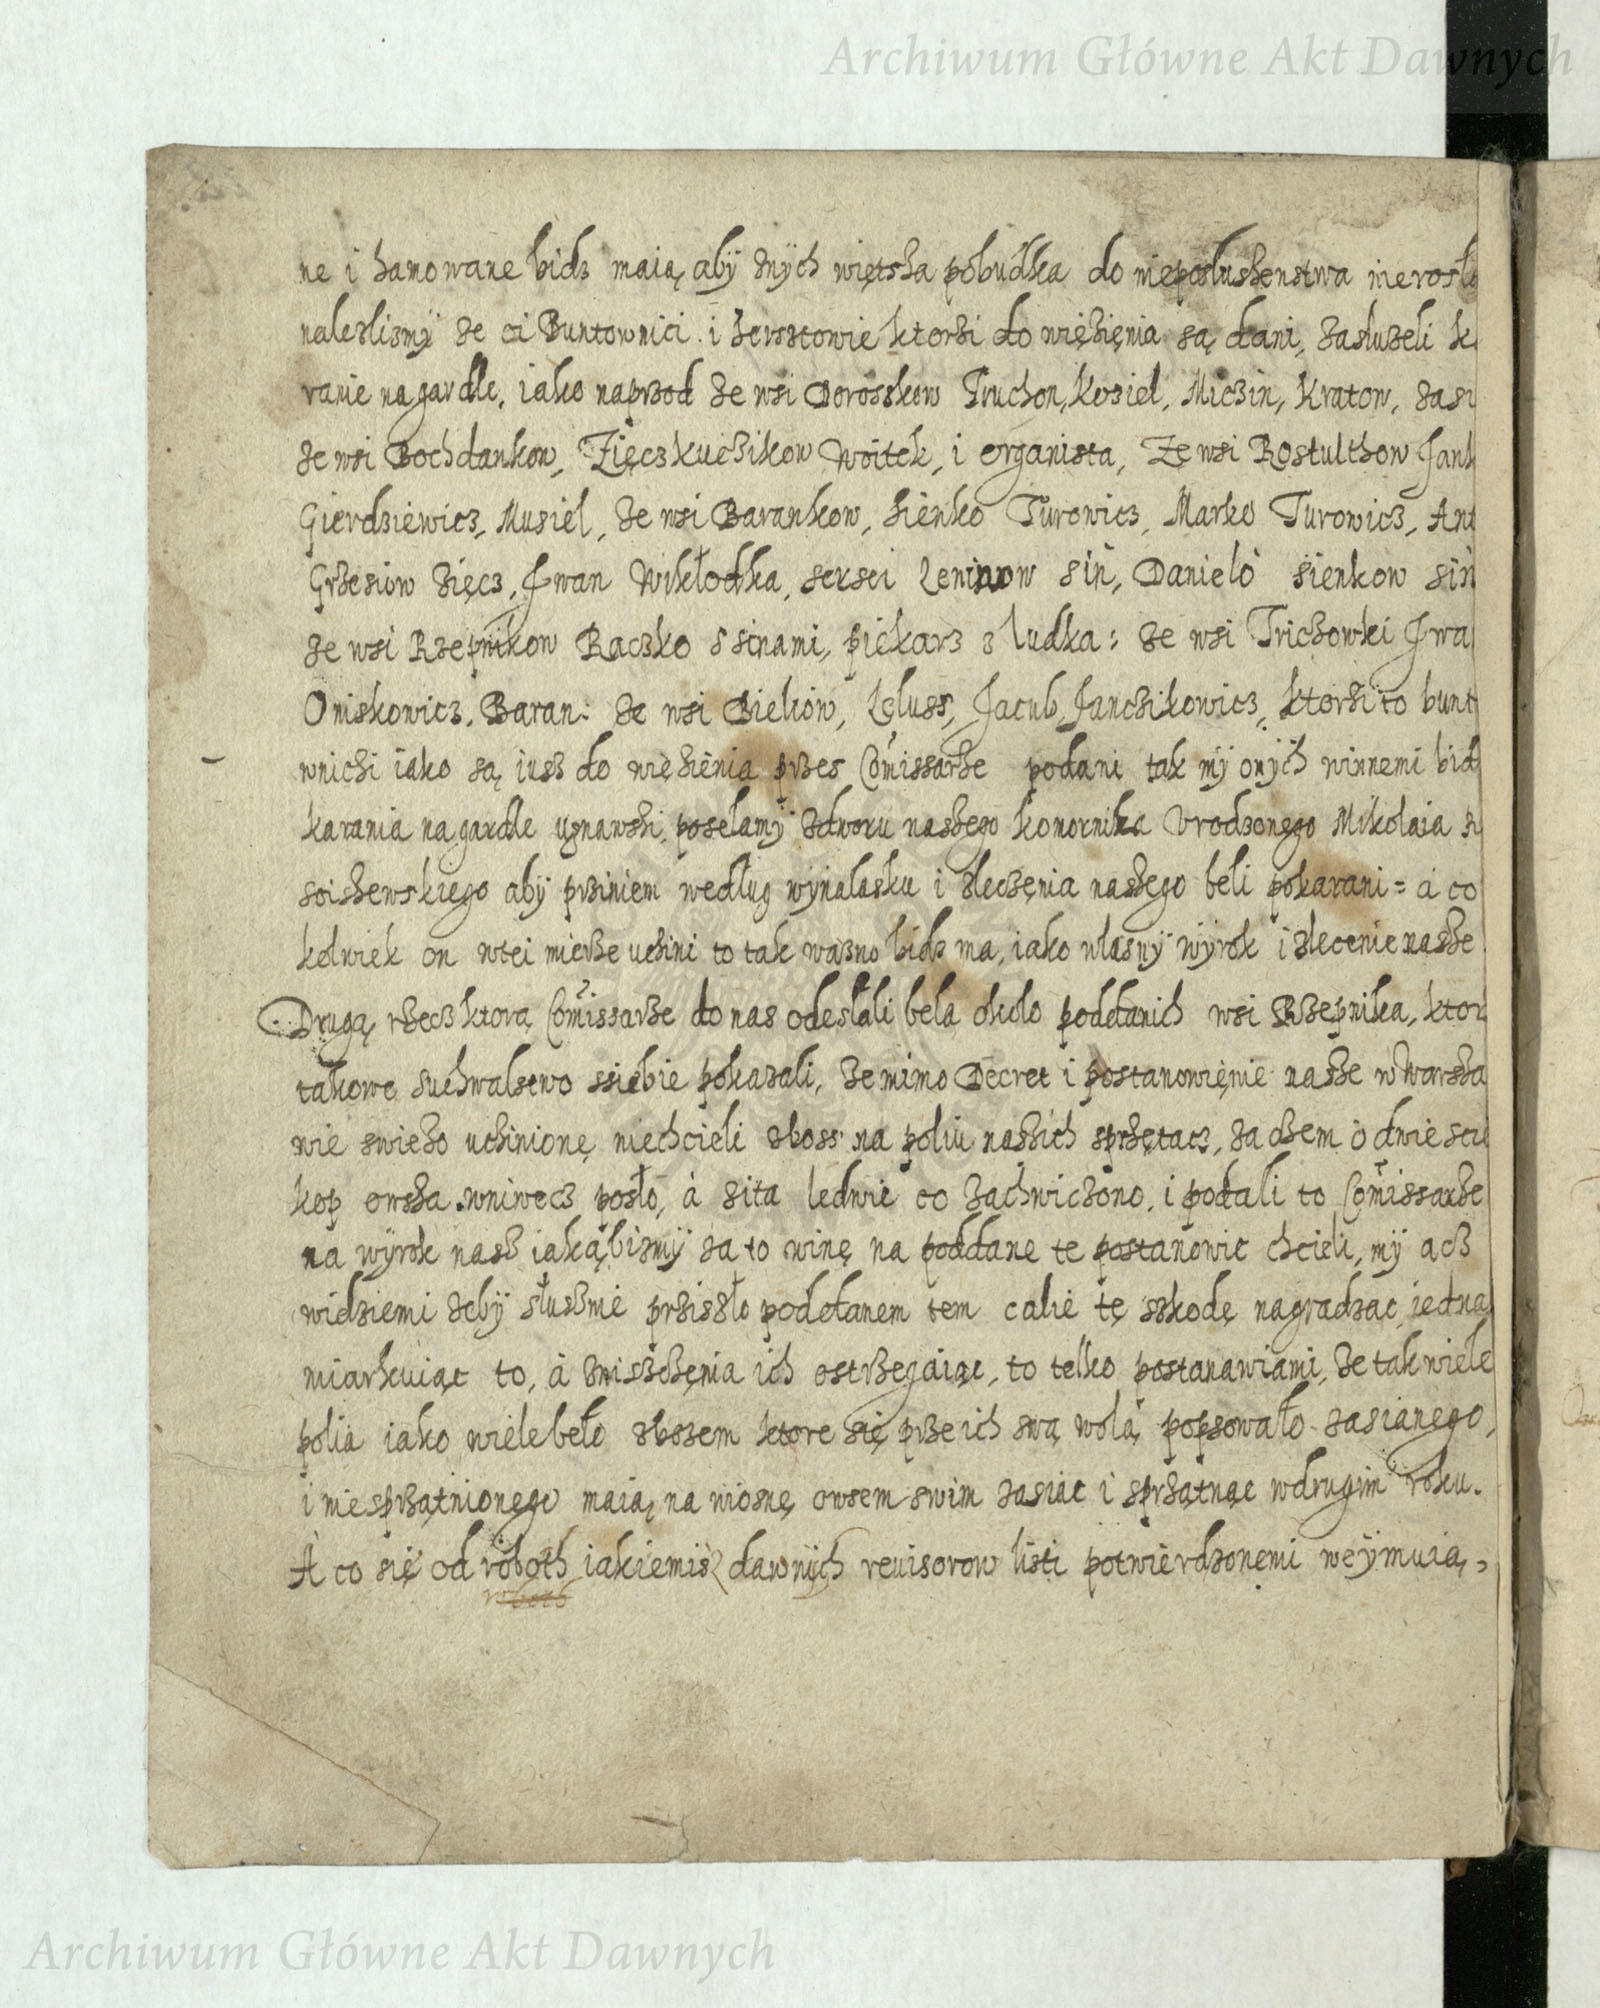 Archiwum Główne Akt Dawnych
ne i hamowane bidz maią, abÿ znÿch więtsha pobudka do nieposlushenstwa nierosła
nalezlismÿ ze ci Buntownici i herstowie ktorzi do więzięnia są dani, zasluzeli k
ranie na gardle, iako naprzod ze wsi Dorosskow Truchon, Koziel, Miczin, Kratow, zasi
ze wsi Bochdankow, Zięcz kuczikow Woitek, i organista, Ze wsi Rostulthow Jank
Gierdziewicz, Musiel, ze wsi Barankow, hienko Turowicz, Marko Turowicz, Ant
Grzesiow zięcz, Jwan Wikłodka, sersei Leninow sin, Danielo sienkow sin
ze wsi Rzepnikow Raczko s sinami, piekarz z ludka: ze wsi Trichowki Jwa
Oniskowicz, Baran: ze wsi Bielkow, Leluss, Jacub Janchikowicz, ktorzi to bunt
wnichi iako są iusz do więzienia przes Comissarze podani tak mÿ onÿch winnemi bid
karania na gardle uznawshi, poselamÿ zdworu nashego komornika Vrodzonego Mikolaia
soishewskiego abÿ prziniem według wÿnalasku i zleczęnia nashego beli pokarani = a co
kolwiek on wtei mierze uchini to tak wazno bidz ma, iako własnÿ wÿrok i zlecenie nashe
Drugą rzecz ktorą Comissarze do nas odeslali bela okolo poddanich wsi Rzepnika, ktor
takowe suchwalstwo ssiebie pokazali, ze mimo Decret i postanowięnie nashe w Warsha
wie swiezo uchinionę niechcieli zboss na poliu nashich sprzętacz, za chem o dwie sci
kop owsha wniwecz posło, à zita ledwie co zachwiczono, i podali to Comissarze
na wÿrok nash iakąbismÿ za to winę na poddane te postanowic chcieli, mÿ acz
widziemi zebÿ słuszmie prziszło poddanem tem calie tę szkodę nagradzac, iedna
miarkuiąc to, à zniszczęnia ich ostrzegaiąc, to telko postanawiami, ze tak wiele
polia iako wiele beło zbozem ktore się prze ich swą wolą popsowało zasianego,
i niesprzątnionego maią na wiosnę owsem swim zasiac i sprzątnąc wdrugim roku.
A co się od roboth iakiemis dawnÿch reuisorow listi potwierdzonemi weÿmuią,
Archiwum Główne Akt Dawnych